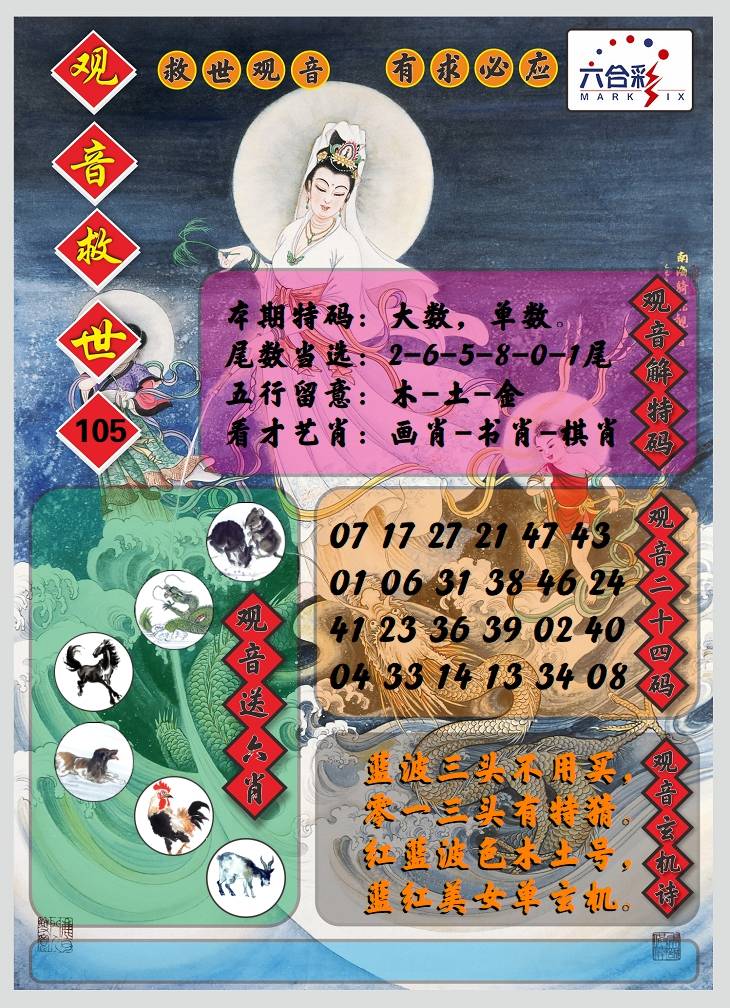 观音救世
105
救世观音 有求必应
六合彩
MARK SIX
本期特码：大数，单数。
尾数当选：2-6-5-8-0-1尾
五行留意：木-土-金
看才艺肖：画肖-书肖-棋肖
观音解特码
07 17 27 21 47 43
01 06 31 38 46 24
41 23 36 39 02 40
04 33 14 13 34 08
观音二十四码
观音送六肖
蓝波三头不用买，
零一三头有特猜。
红蓝波色木土号，
蓝红美女单玄机。
观音玄机诗